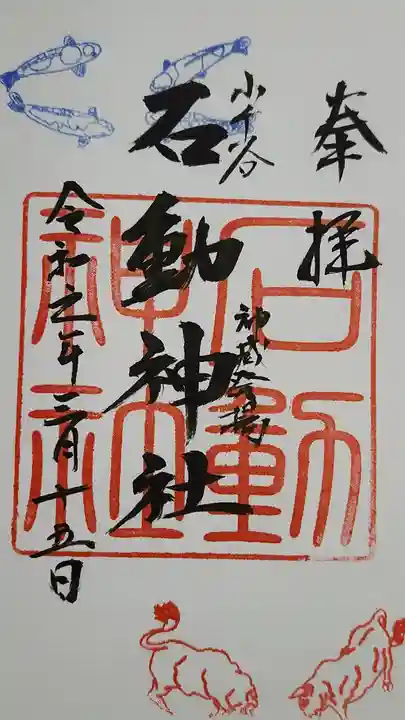 奉拝
小千谷
石動神社
神威発揚
令和年三月十五日
石動
神社